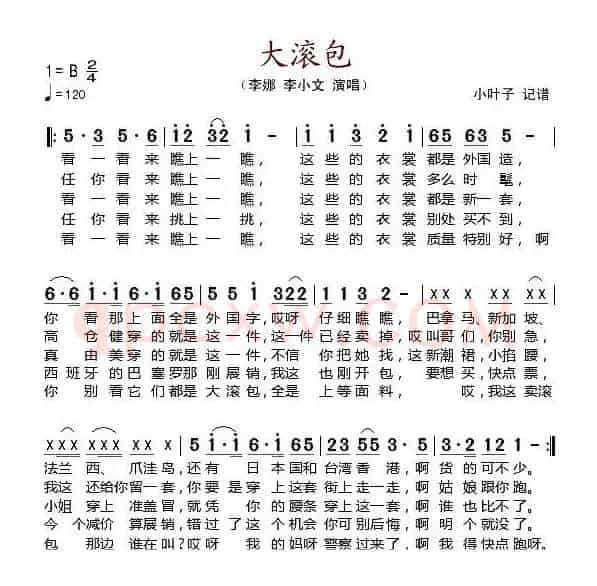 大滚包
1=B 2/4
（李娜 李小文 演唱）
♩=120
小叶子 记谱
5·3 5·6 | i2 32 i - | i i 3 2 i | 65 63 5 -
看一看来瞧上一瞧，这些的衣裳都是外国造，
任你看来瞧上一瞧，这些的衣裳多么时髦，
看一看来瞧上一瞧，这些的衣裳都是新一套，
任你看来挑上一挑，这些的衣裳别处买不到，
看一看来瞧上一瞧，这些的衣裳质量特别好，啊
你看那上面全是外国字，哎呀仔细瞧瞧，巴拿马、新加坡、
高仓健穿的就是这一件，这一件已经卖掉，哎叫哥们，你别急，
真由美穿的就是这一件，不信你把她找，这新潮裙，小掐腰，
西班牙的巴塞罗那刚展销，我这也刚开包，要想买，快点票，
你别看它们都是大滚包，全是上等面料，哎，我这卖滚
法兰西、爪洼岛，还有日本国和台湾香港，啊货的可不少。
我这还给你留一套，你要是穿上这套街上走一走，啊姑娘跟你跑。
小姐穿上准盖冒，就凭你的腰条穿上这一套，啊谁也比不了。
今个减价算展销，错过了这个机会你可别后悔，啊明个就没了。
包那边谁在叫？哎呀我的妈呀警察过来了，啊我得快点跑呀。